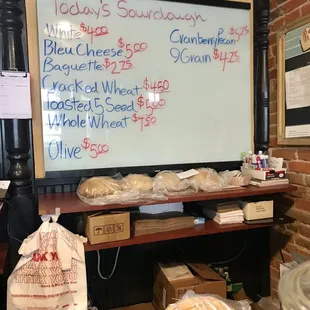 Today's Sourdough
White $4.00
Bleu Cheese $5.00
Baguette $2.75
Cracked Wheat $4.50
Toasted 5 Seed $5.00
Whole Wheat
Olive $5.00
Cranberry Pecan
9 Grain $4.75